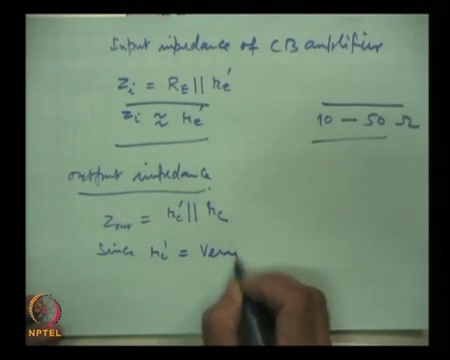 Input impedance of CB amplifier
Zi = RE || re'
Zi ≈ re'
10 - 50 Ω
output impedance
Zout = rc' || rc
Since rc' = Very
NPTEL